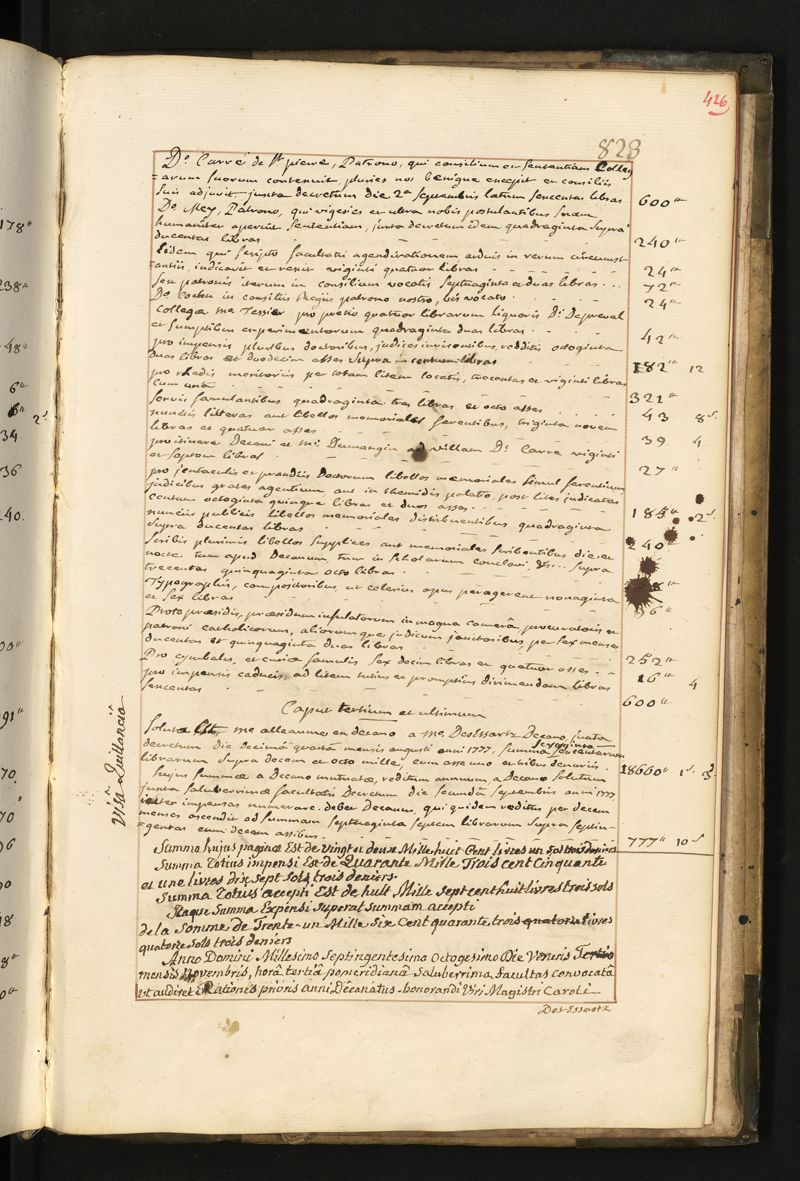 426
823
D°. Carré de St pierre, Patrono, qui consilium et sententiam Colleg
=arum suorum contenuit, pluries nos benigne excepit et consiliis
suis adjuvit, juxta decretum die 2a septembris latum sexcentas libras 600ᵗᵗ
D°. Mey, Patrono, qui vigesies et ultra nobis postulantibus suam
humaniter aperuit sententiam, juxta decretum idem quadraginta supra
ducentas libras 240ᵗᵗ
Eidem qui scripto facultati agendi rationem arduis in rerum circumst
=antiis, indicavit et rexit viginti quatuor libras 24ᵗᵗ
sex patronis iterum in consilium vocatis septuaginta et duas libras 72ᵗᵗ
D° Cochu in consiliis Regiis patrono nostro, bis vocato 24ᵗᵗ
Collegæ me Tessier pro pretio quatuor librarum liquoris Di. Depreval
et sumptibus experimentorum quadraginta duas libras 42ᵗᵗ
pro impensis pluribus doctoribus, judices invisentibus, redditis octoginta
duas libras et duodecim asses supra centum libras 182ᵗᵗ 12
pro rhedis meritoriis per totam litem locatis, trecentas et viginti libras
cum una 321ᵗᵗ
servis famulantibus quadraginta tres libras et octo asses 43 8s.
nunciis litteras aut libellos memoriales ferentibus, triginta novem
libras et quatuor asses 39 4
pro itinere Decani et Mi. Dumangin ad villam Di. Carré viginti
et septem libras 27ᵗᵗ
pro jentaculis et prandiis Doctorum libellos memoriales simul ferentium
judicibus grates agentium aut in themidis palatio, post lites judicatas
centum octoginta quinque libras et duos asses 185ᵗᵗ 2s
nunciis publicis libellos memoriales distribuentibus quadraginta
supra ducentas libras 240ᵗᵗ
scribis plurimis libellos supplices aut memoriales scribentibus die ac
nocte tum apud Decanum, tum in scholarum conclavi, &c... supra
trecentas quinquaginta octo libras
Typographis, compositoribus, ut celerius opus peragerent nonaginta
et sex libras 96
Proto præsidis, præsidum infulatorum in magna camerâ, procuratoris et
patroni catholicorum, aliorumque judicum janitoribus, per sex menses
ducentas et quinquaginta duas libras 252ᵗᵗ
Pro cymbalis, et curiæ famulis sex decim libras et quatuor asses 16ᵗᵗ 4
pro impensis caducis, ad litem tutius et promptius dirimendam libras
sexcentas 600ᵗᵗ
Caput tertium et ultimum
Visâ Quittanciâ
Soluta me alleaume ex decano a me. DesEssartz Decano, juxta
decretum die decimâ quartâ mensis augusti anni 1777, summa sexcentarum
sexaginta
librarum supra decem et octo mille, cum asse uno et tribus denariis 18660ᵗᵗ 1s. 3d.
hujus summæ a Decano mutuatæ, reditum annuum a Decano solutum
juxta saluberrimæ facultatis Decretum die secundâ septembris anni 1777
inter impensas numerare debet Decanus, qui quidem reditus per decem
menses ascendit ad summam septuaginta septem librarum supra septin-
=gentas cum decem assibus 777ᵗᵗ 10s
Summa hujus paginæ Est de Vingt et deux Mille huit Cent livres un sol trois deniers
Summa Totius impensi Est de Quarante Mille Trois cent Cinquante
et une livres dix sept sols trois deniers.
Summa Totius accepti Est de huit Mille Sept cent huit livres trois sols
Itaque Summa Expensi superat summam accepti
de la Somme de Trente-un Mille Six Cent quarante trois livres
quatorze sols trois deniers
Anno Domini Millesimo Septingentesimo Octogesimo Die Veneris Tertio
mensis Novembris, horâ tertiâ pomeridianâ saluberrima facultas convocata
est audiret Rationes prioris anni Decanatus honorandi Viri Magistri Caroli
Des-Essartz
178ᵗᵗ
238ᵗᵗ
48ᵗᵗ
6ᵗᵗ
34
36
40.
00ᵗᵗ
91ᵗᵗ
70.
70
06
90
18
8ᵗᵗ
0ᵗᵗ